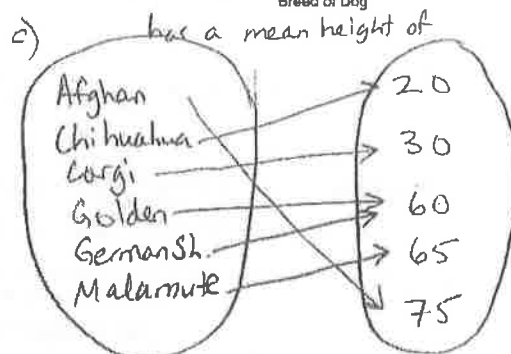 Breed of Dog
c) has a mean height of
Afghan
Chihuahua
Corgi
Golden
German Sh.
Malamute
20
30
60
65
75